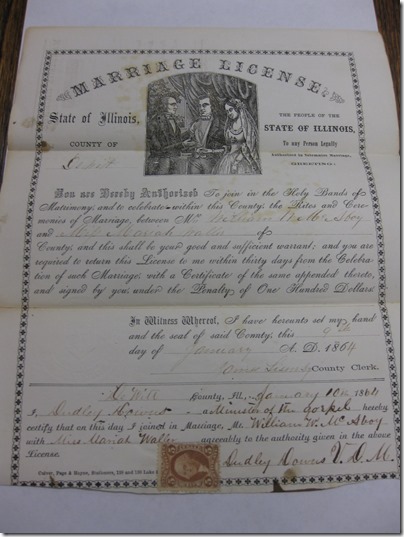 MARRIAGE LICENSE.
State of Illinois,
COUNTY OF
De Witt
THE PEOPLE OF THE
STATE OF ILLINOIS,
To any Person Legally
Authorized to Solemnize Marriage,
GREETING.
You are Hereby Authorized To join in the Holy Bands of
Matrimony, and to celebrate within this County, the Rites and Cere-
monies of Marriage, between Mr. William W. McAboy
and Miss Mariah Waller of
County; and this shall be your good and sufficient warrant; and you are
required to return this License to me within thirty days from the Celebra-
tion of such Marriage, with a Certificate of the same appended thereto,
and signed by you, under the Penalty of One Hundred Dollars.
In Witness Whereof, I have hereunto set my hand
and the seal of said County, this 9th
day of January A. D. 1864
County Clerk.
De Witt County, Ill., January 10th 1864
I, Dudley Downs a Minister of the Gospel hereby
certify that on this day I joined in Marriage, Mr. William W. McAboy
with Miss Mariah Waller agreeably to the authority given in the above
License.
Dudley Downs V. D. M.
Culver, Page & Hoyne, Stationers, 128 and 130 Lake